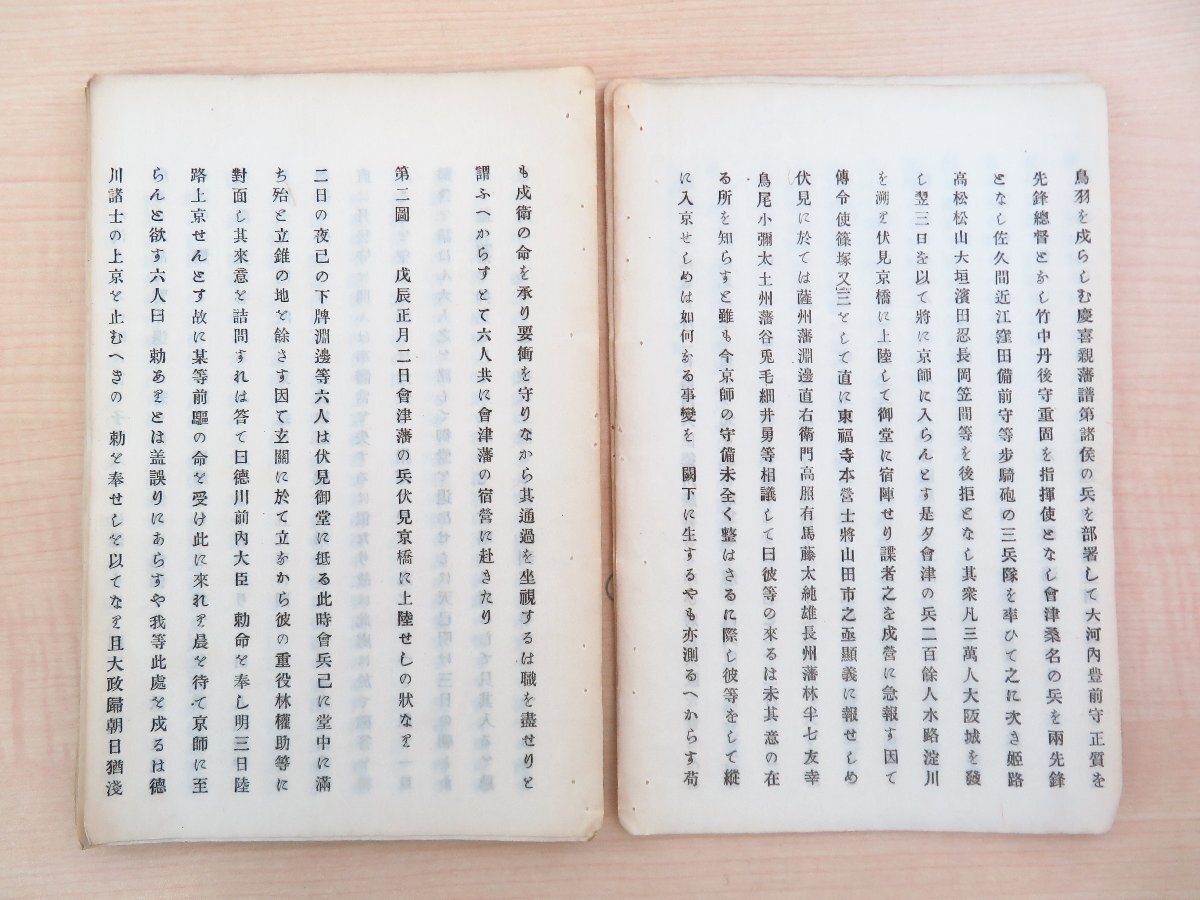 鳥羽を戍らしむ慶喜親藩譜第諸侯の兵を部署して大河內豊前守正質を
先鋒總督とかし竹中丹後守重固を指揮使となし會津桑名の兵を兩先鋒
となし佐久間近江窪田備前守等步騎砲の三兵隊を率ひて之に次き姬路
高松松山大垣濱田忍長岡笠間等を後拒となし其衆凡三萬人大阪城を發
し翌三日を以て將に京師に入らんとす是夕會津の兵二百餘人水路淀川
を溯り伏見京橋に上陸して御堂に宿陣せり諜者之を戍營に急報す因て
傳令使篠塚又三をして直に東福寺本營士將山田市之亟顯義に報せしめ
伏見に於ては薩州藩淵邊直右衛門高照有馬藤太純雄長州藩林半七友幸
鳥尾小彌太土州藩谷兎毛細井勇等相議して曰彼等の來るは未其意の在
る所を知らすと雖も今京師の守備未全く整はさるに際し彼等をして縱
に入京せしめは如何なる事變を 闕下に生するやも亦測るへからす苟
も戍衛の命を承り要衝を守りなから其通過を坐視するは職を盡せりと
謂ふへからすとて六人共に會津藩の宿營に赴きたり
第二圖 戊辰正月二日會津藩の兵伏見京橋に上陸せしの狀なり
二日の夜己の下牌淵邊等六人は伏見御堂に抵る此時會兵己に堂中に滿
ち殆と立錐の地を餘さす因て玄關に於て立なから彼の重役林權助等に
對面し其來意を詰問すれは答て曰德川前內大臣 勅命を奉し明三日陸
路上京せんとす故に某等前驅の命を受け此に來れり晨を待て京師に至
らんと欲す六人曰 勅ありとは盖誤りにあらすや我等此處を戍るは德
川諸士の上京を止むへきの 勅を奉せしを以てなり且大政歸朝日猶淺